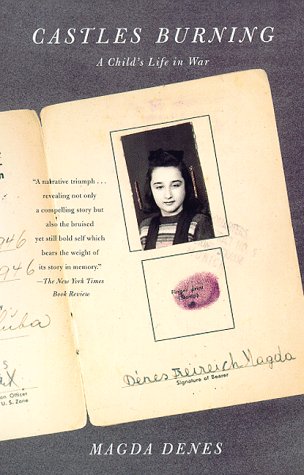 CASTLES BURNING
A Child's Life in War
"A narrative triumph . . .
revealing not only
a compelling story but
also the bruised
yet still bold self which
bears the weight of
its story in memory."
—The New York Times
Book Review
1946
1946
Signature of Bearer
Dénes Freireich Magda
on Officer
U. S. Zone
MAGDA DENES